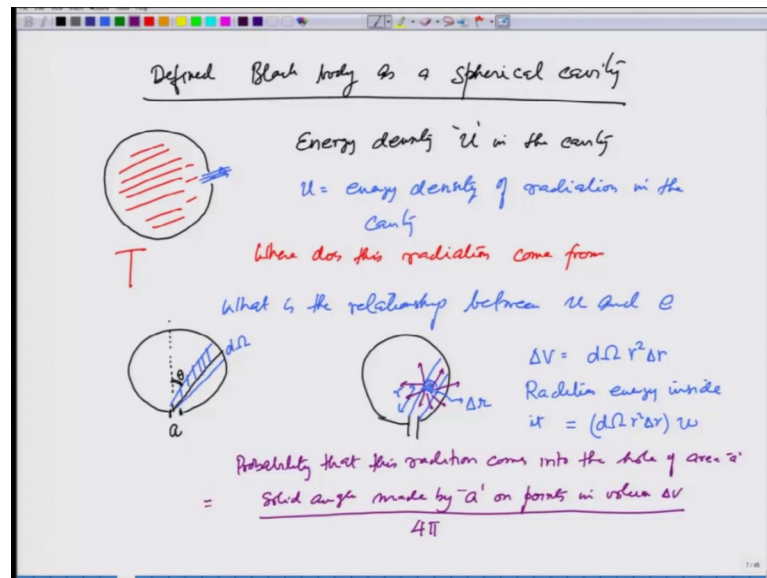 Defined Black body as a spherical cavity
Energy density 'u' in the cavity
u = energy density of radiation in the
cavity
T
Where does this radiation come from
What is the relationship between u and e
θ
dΩ
a
r
Δr
ΔV = dΩ r²Δr
Radiation energy inside
it = (dΩ r²Δr) u
Probability that this radiation comes into the hole of area 'a'
= solid angle made by 'a' on points in volume ΔV
4π
7/45